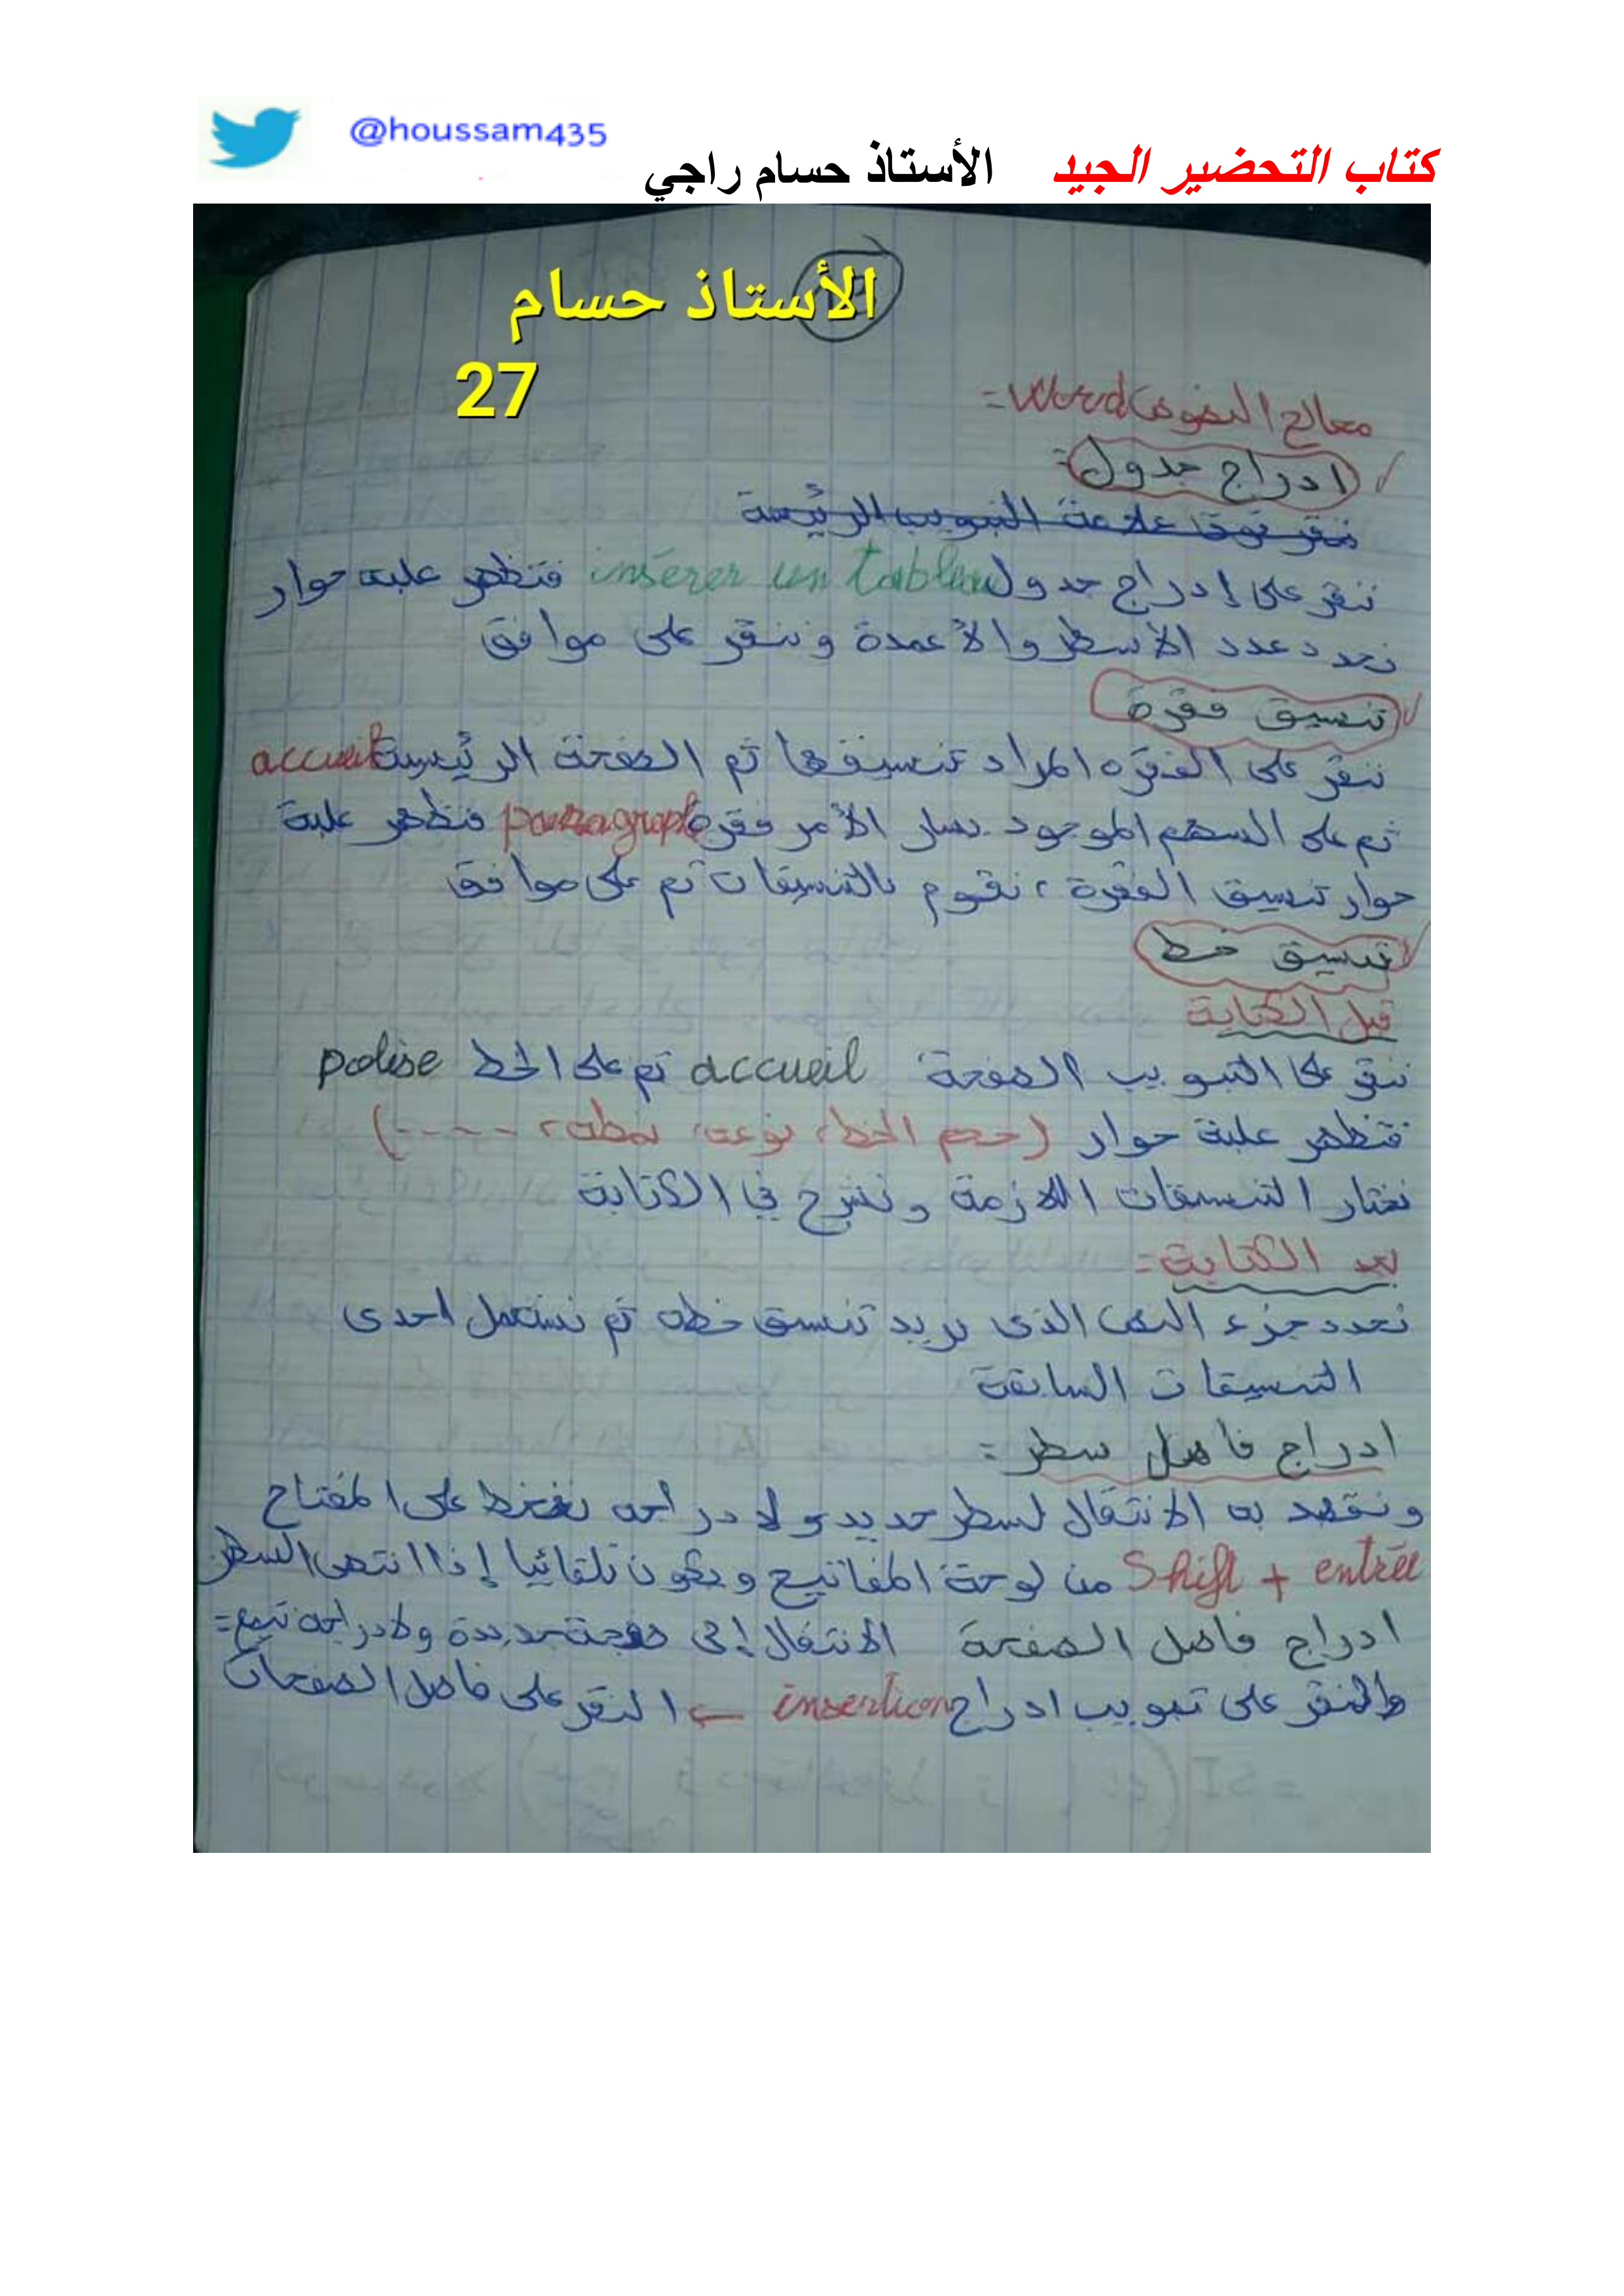 @houssam435
كتاب التحضير الجيد الأستاذ حسام راجي
الأستاذ حسام
27
معالج النصوص Word =
ادراج جدول:
ننقر فوق علامة التبويب الرئيسة
ننقر على إدراج جدول insérer un tableau فتظهر علبة حوار
نحدد عدد الأسطر والأعمدة وننقر على موافق
تنسيق فقرة
ننقر على الفقرة المراد تنسيقها ثم الصفحة الرئيسية accueil
ثم على السهم الموجود يسار الأمر فقرة paragraph فتظهر علبة
حوار تنسيق الفقرة ، نقوم بالتنسيقات ثم على موافق
تنسيق خط
قبل الكتابة
ننقر على التبويب الصفحة accueil ثم على الخط police
فتظهر علبة حوار (حجم الخط، نوعه، نمطه، -----)
نختار التنسيقات اللازمة ونشرع في الكتابة
بعد الكتابة =
نحدد جزء النص الذي نريد تنسيق خطه ثم نستعمل احدى
التنسيقات السابقة
ادراج فاصل سطر =
ونقصد به الانتقال لسطر جديد ولادراجه نضغط على المفتاح
Shift + entrée من لوحة المفاتيح ويكون تلقائيا إذا انتهى السطر
ادراج فاصل الصفحة الانتقال إلى صفحة جديدة ولادراجه نتبع =
النقر على تبويب ادراج insertion ← النقر على فاصل الصفحات